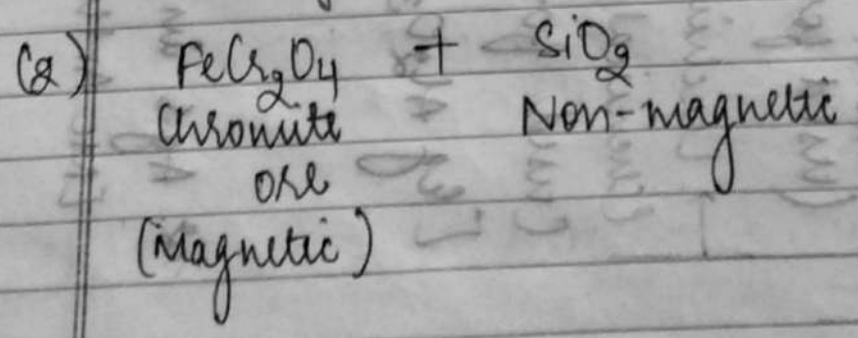 (2) FeCr2O4 + SiO2
Chromite Non-magnetic
ore
(Magnetic)